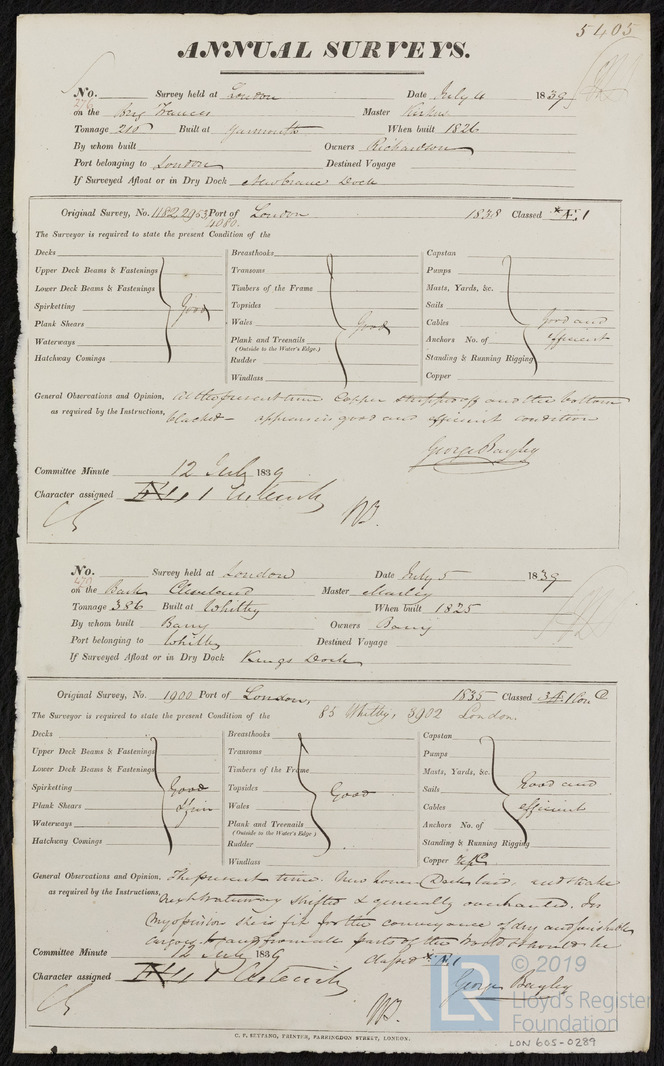 5405
ANNUAL SURVEYS.
No. 276 Survey held at London Date July 4 1839
on the Brig Frances Master
Tonnage 210 Built at Yarmouth When built 1826
By whom built Owners Richardson
Port belonging to London Destined Voyage
If Surveyed Afloat or in Dry Dock Newcrane Dock
Original Survey, No. 1182.2963 Port of London 1838 Classed *Æ 1
4080.
The Surveyor is required to state the present Condition of the
Decks Breasthooks Capstan
Upper Deck Beams & Fastenings Transoms Pumps
Lower Deck Beams & Fastenings Timbers of the Frame Masts, Yards, &c.
Spirketting Good Topsides Sails
Plank Shears Wales Good Cables Good and
Waterways Plank and Treenails Anchors No. of efficient
(Outside to the Water's Edge.)
Hatchway Comings Rudder Standing & Running Rigging
Windlass Copper
General Observations and Opinion, At the present time Copper stript off and the bottom
as required by the Instructions, blacked – appears in good and efficient condition
George Bayley
Committee Minute 12 July 1839
Character assigned Æ 1
No. 470 Survey held at London Date July 5 1839
on the Bark Cleveland Master Marley
Tonnage 386 Built at Whitby When built 1825
By whom built Barry Owners Barry
Port belonging to Whitby Destined Voyage
If Surveyed Afloat or in Dry Dock Kings Dock
Original Survey, No. 1900 Port of London, 1835 Classed Æ 1
The Surveyor is required to state the present Condition of the 85 Whitby, 3902 London.
Decks Breasthooks Capstan
Upper Deck Beams & Fastenings Transoms Pumps
Lower Deck Beams & Fastenings Timbers of the Frame Masts, Yards, &c.
Spirketting Good Topsides Good Sails Good and
Plank Shears Wales Cables efficient
Waterways Plank and Treenails Anchors No. of
(Outside to the Water's Edge.)
Hatchway Comings Rudder Standing & Running Rigging
Windlass Copper
General Observations and Opinion, The present time. New lower Deck laid, and strake
as required by the Instructions, next waterway shifted & generally overhauled. In
my opinion she is fit for the conveyance of dry and perishable
cargoes to and from all parts of the World & should be
Committee Minute 12 July 1839 classed *Æ 1
Character assigned Æ 1 George Bayley
C. F. SEYFANG, PRINTER, FARRINGDON STREET, LONDON.
LR
© 2019
Lloyd's Register
Foundation
LON 605-0289